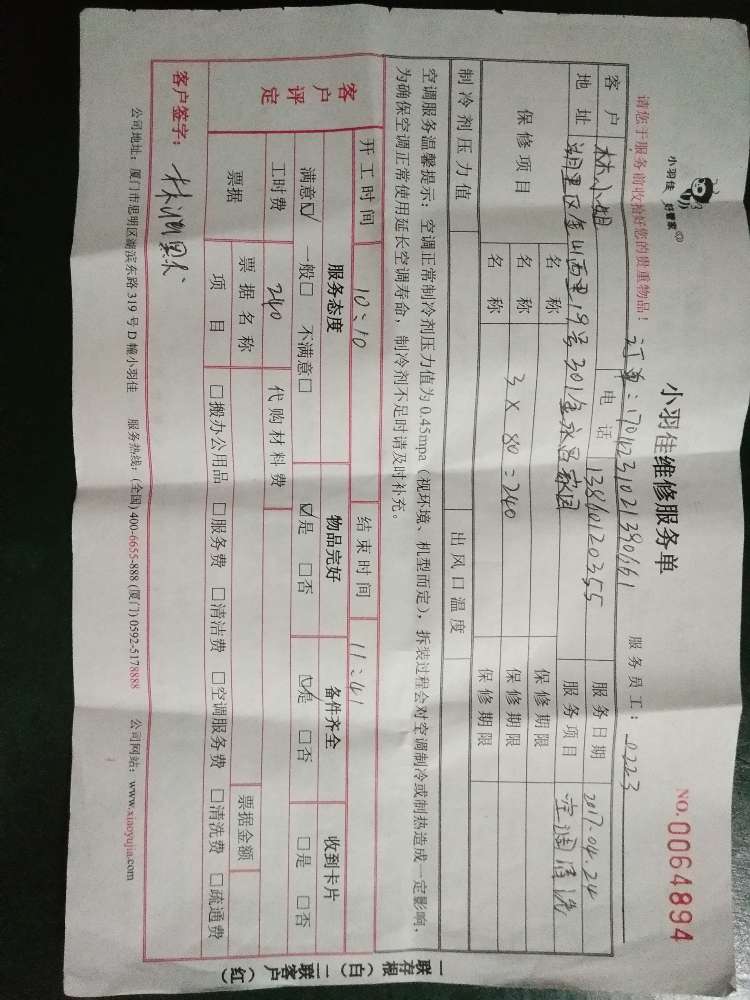 小羽佳 好管家
小羽佳维修服务单
NO.0064894
请您于服务前收拾好您的贵重物品！
订单：1704231021390161
服务员工：0223
客户 林小姐 电话 13860120355 服务日期 2017.04.24
地址 湖里区金山西里19号301金永昌家园 服务项目 空调清洗
保修项目 名称 保修期限
名称 3×80=240 保修期限
名称 保修期限
制冷剂压力值 出风口温度
空调服务温馨提示：空调正常制冷剂压力值为0.45mpa（视环境、机型而定），拆装过程会对空调制冷或制热造成一定影响，
为确保空调正常使用延长空调寿命，制冷剂不足时请及时补充。
开工时间 10:10 结束时间 11:41
客户评定
服务态度 物品完好 备件齐全 收到卡片
满意☑ 一般□ 不满意□ ☑是 □否 ☑是 □否 □是 □否
工时费 240 代购材料费
票据 票据名称 票据金额
项目 □搬办公用品 □服务费 □清洁费 □空调服务费 □清洗费 □疏通费
客户签字：
公司地址：厦门市思明区湖滨东路319号D幢小羽佳 服务热线：(全国)400-6655-888 (厦门)0592-5178888 公司网站：www.xiaoyujia.com
一联存根（白）二联客户（红）